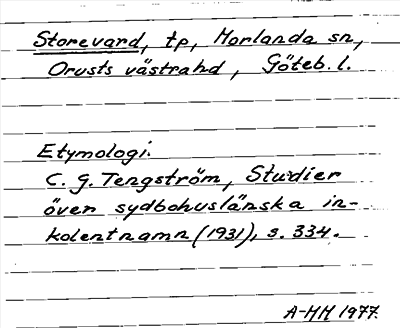 Storevard, tp, Morlanda sn,
Orusts västrahd, Göteb. l.
Etymologi:
C. G. Tengström, Studier
över sydbohuslänska in-
kolentnamn (1931), s. 334.
A-MH 1977.